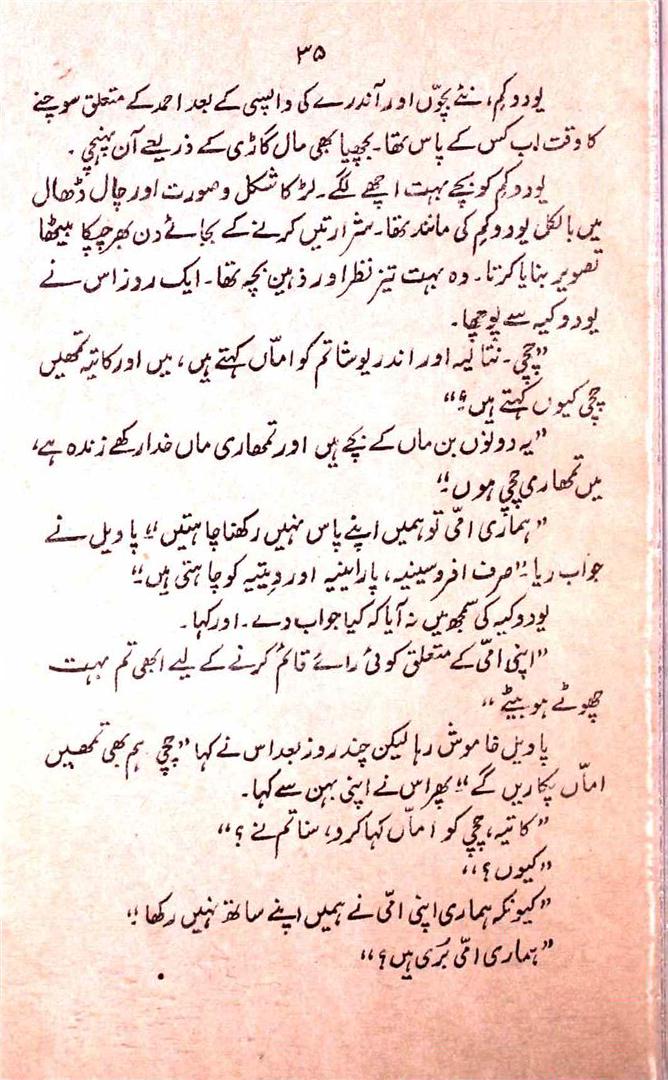 ۳۵
یودوکم، نئے بچوّں اور آندرے کی واپسی کے بعد احمد کے متعلق سوچنے
کا وقت اب کس کے پاس تھا۔ بچھیا بھی مال گاڑی کے ذریعے آن پہنچی۔
یودوکم کو بچے بہت اچھے لگے۔ لڑکا شکل و صورت اور چال ڈھال
میں بالکل یودوکم کی مانند تھا۔ شرارتیں کرنے کے بجائے دن بھر چپکا بیٹھا
تصویر بنایا کرتا۔ وہ بہت تیز نظر اور ذہین بچہ تھا۔ ایک روز اس نے
یودوکیہ سے پوچھا۔
”چچی۔ نتالیہ اور اندریوشا تم کو امّاں کہتے ہیں، میں اور کاتیہ تمھیں
چچی کیوں کہتے ہیں؟“
”یہ دونوں بن ماں کے بچے ہیں اور تمھاری ماں خدا رکھے زندہ ہے،
میں تمھاری چچی ہوں۔“
”ہماری امّی تو ہمیں اپنے پاس نہیں رکھنا چاہتیں۔“ پاویل نے
جواب دیا۔ ”صرف افروسینیہ، پاراہینیہ اور دیتیہ کو چاہتی ہیں۔“
یودوکیہ کی سمجھ میں نہ آیا کہ کیا جواب دے۔ اور کہا۔
”اپنی امّی کے متعلق کوئی رائے قائم کرنے کے لیے ابھی تم بہت
چھوٹے ہو بیٹے“
پاویل خاموش رہا لیکن چند روز بعد اس نے کہا ”چچی ہم بھی تمھیں
امّاں پکاریں گے“ پھر اس نے اپنی بہن سے کہا۔
”کاتیہ، چچی کو امّاں کہا کرو، سنا تم نے؟“
”کیوں؟“
”کیونکہ ہماری اپنی امّی نے ہمیں اپنے ساتھ نہیں رکھا۔“
”ہماری امّی بُری ہیں؟“